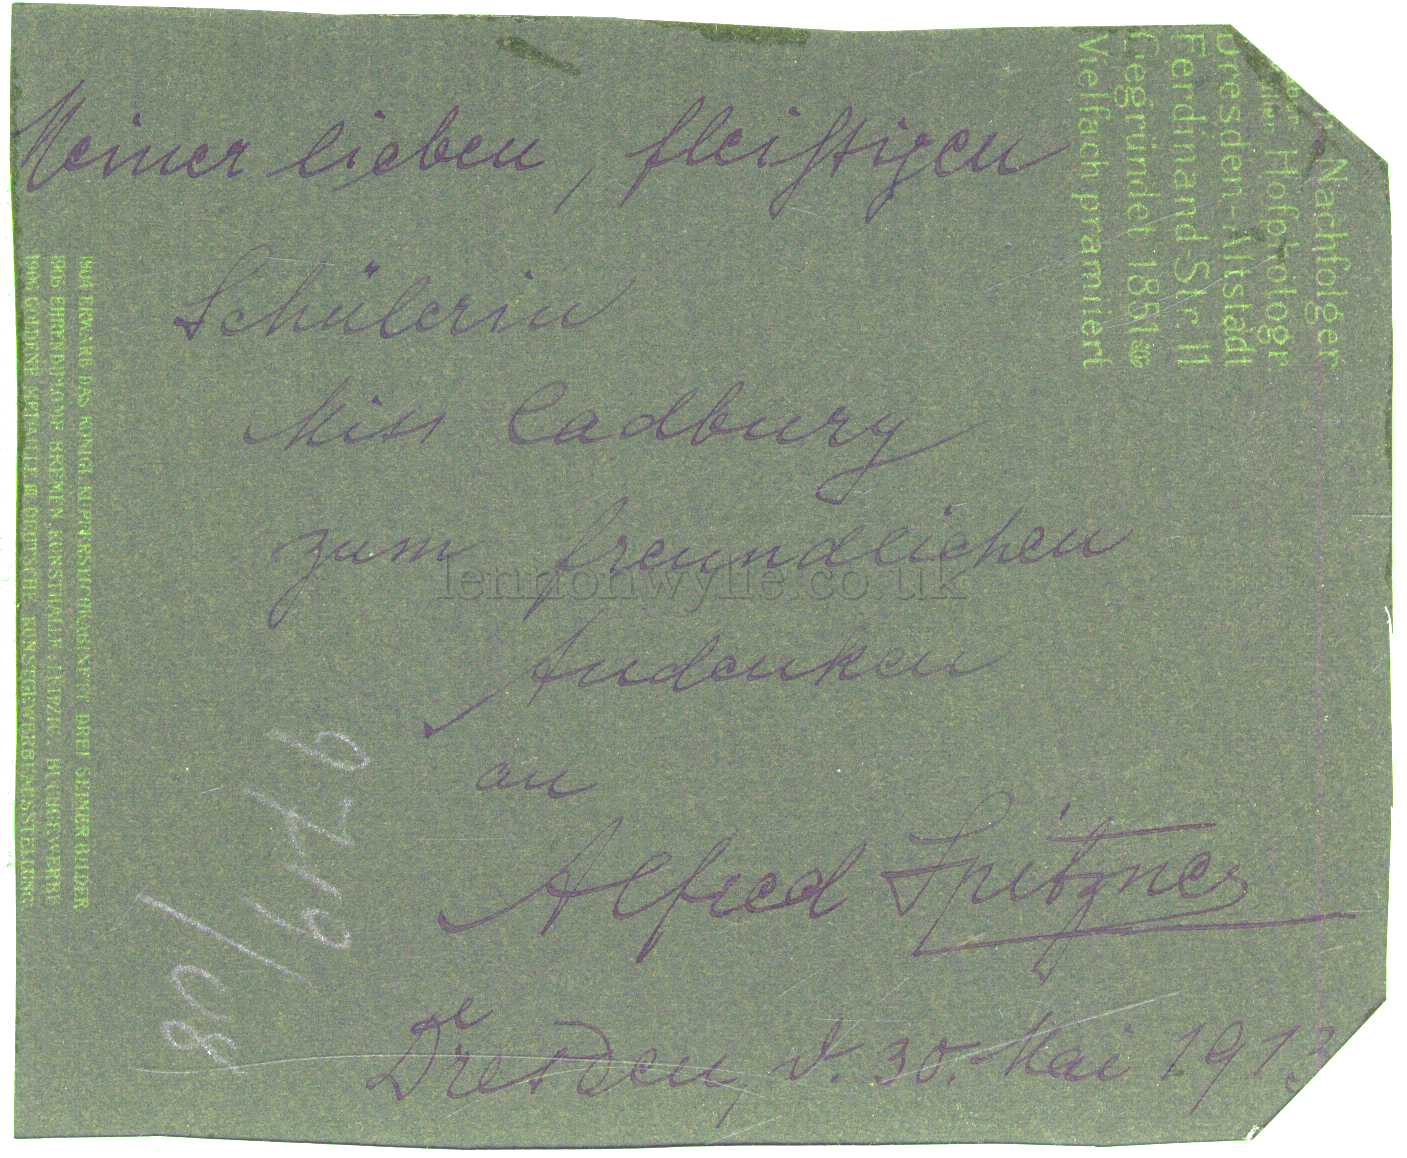 Meiner lieben, fleißigen
Schülerin
Miss Cadbury
zum freundlichen
Andenken
an
Alfred Spitzner
Dresden, d. 30. Mai 1913
Nachfolger
Hofphotogr.
Dresden-Altstadt
Ferdinand-Str. 11
Gegründet 1851
Vielfach prämiiert
1904 ERWARB DAS KÖNIGL. KUPFERSTICHKABINETT DREI SEINER BILDER
1905 EHRENDIPLOME BREMEN, KUNSTHALLE, LEIPZIG, BUCHGEWERBE
1906 GOLDENE MEDAILLE III. DEUTSCHE KUNSTGEWERBEAUSSTELLUNG
lennonwylie.co.uk